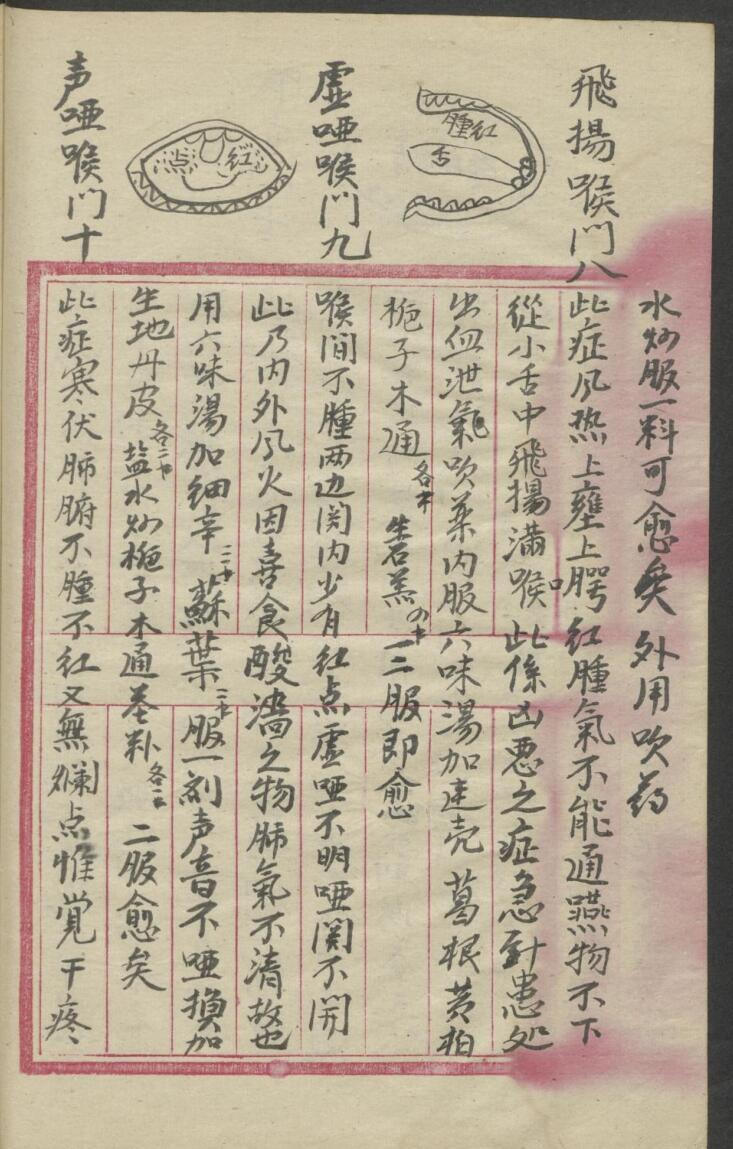 水炒服一料可愈矣 外用吹药
飛揚喉門八
此症风热上壅上腭红腫氣不能通嚥物不下
從小舌中飛揚滿喉口此係凶悪之症急針患处
出血泄氣吹薬内服六味湯加連壳葛根黄柏
栀子木通各 生石羔 一二服即愈
红腫
舌
虚哑喉门九
喉間不腫两边関内少有红点虚哑不明哑関不開
此乃内外风火因喜食酸濇之物肺氣不清故也
用六味湯加細辛 蘇葉 服一剂声音不哑换加
生地丹皮各二 盐水炒栀子木通 各 二服愈矣
红点
声哑喉门十
此症寒伏肺腑不腫不红又無爛点惟覚干疼